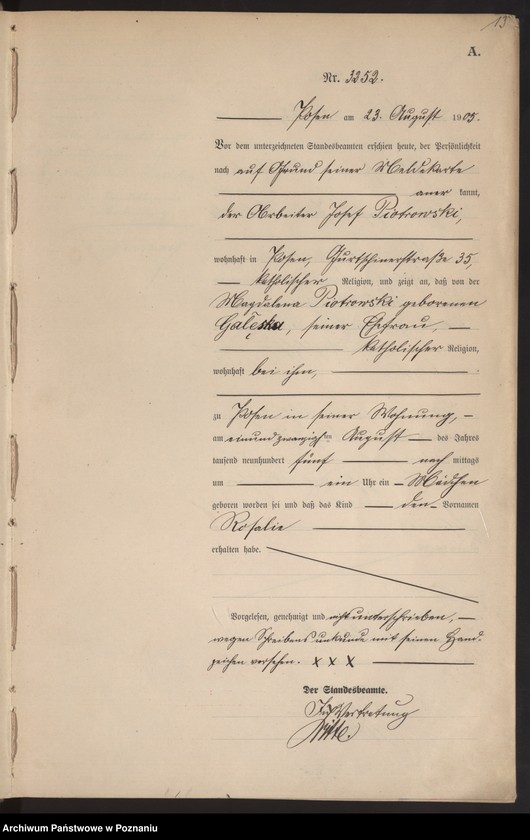 13
A.
Nr. 3252.
Posen am 23. August 1905.
Vor dem unterzeichneten Standesbeamten erschien heute, der Persönlichkeit
nach auf Grund seiner Meldekarte
aner kannt,
der Arbeiter Josef Piotrowski,
wohnhaft in Posen, Gurtschinerstraße 35,
katholischer Religion, und zeigt an, daß von der
Magdalena Piotrowski geborenen
Galęska, seiner Ehefrau,
katholischer Religion,
wohnhaft bei ihm,
zu Posen in seiner Wohnung,
am einundzwanzigsten August des Jahres
tausend neunhundert fünf nach mittags
um ein Uhr ein Mädchen
geboren worden sei und daß das Kind den Vornamen
Rosalie
erhalten habe.
Vorgelesen, genehmigt und nicht unterschrieben,
wegen Schreibensunkunde mit seinen Hand-
zeichen versehen. x x x
Der Standesbeamte.
In Vertretung
Archiwum Państwowe w Poznaniu